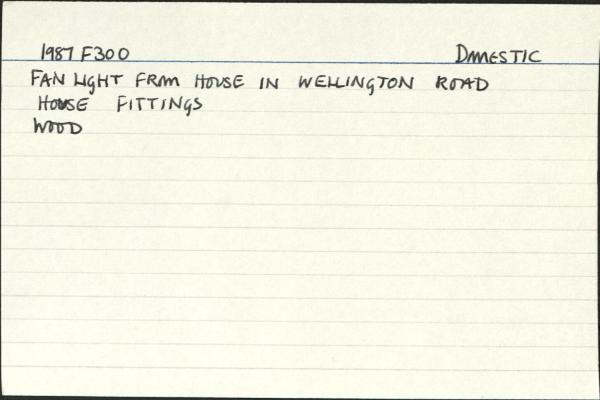 1987 F300 DOMESTIC
FAN LIGHT FROM HOUSE IN WELLINGTON ROAD
HOUSE FITTINGS
WOOD